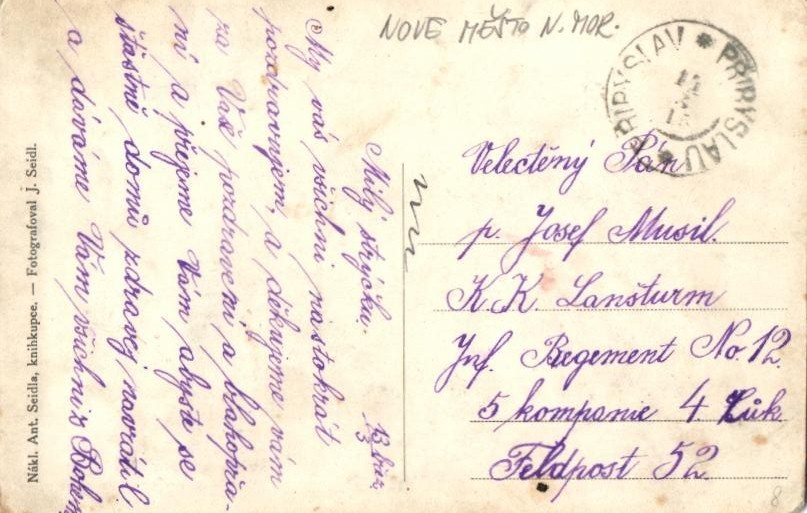 NOVE MĚSTO N. MOR.
PŘIBYSLAV * PŘIBYSLAU *
Milý strýčku.
My vás všichni nastokrát
pozdravujem, a děkujeme vám
za Vaše pozdravení a blahopřá-
ní a přejeme Vám abyste se
šťastně domů zdravej navrátil
a dáváme Vám všichni s Bohem
Velectěný Pán
p. Josef Musil.
K.K. Lansturm
Inf. Regement No. 12.
5 kompanie 4 Zuk
Feldpost 52.
Nákl. Ant. Seidla, knihkupce. — Fotografoval J. Seidl.
8